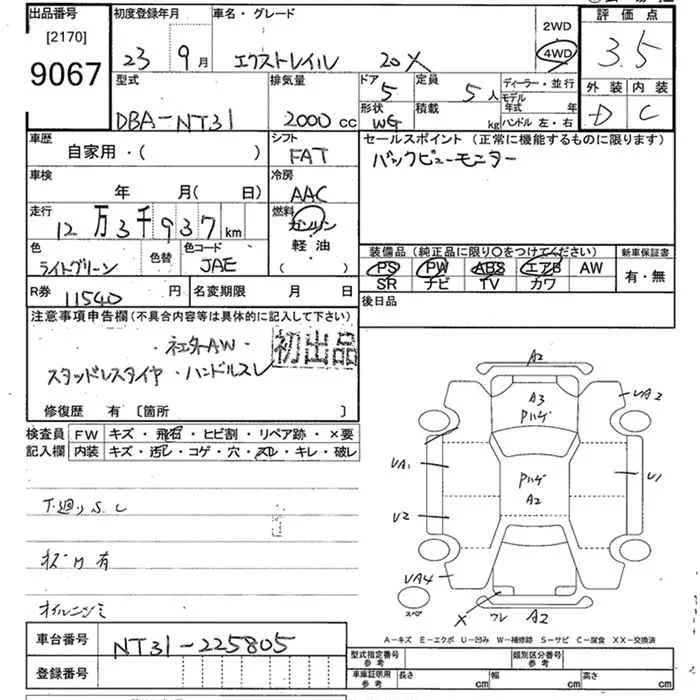 出品番号 初度登録年月 車名・グレード 評価点
[2170]
9067
23 9月 エクストレイル 20X
2WD
4WD
3.5
型式 排気量 ドア 定員 ディーラー・並行 外装 内装
DBA-NT31 2000cc 5 5人
モデル年式 年
D C
形状 積載
WG kg ハンドル 左・右
車歴 シフト セールスポイント (正常に機能するものに限ります)
自家用・( ) FAT バックビューモニター
車検 冷房
年 月( 日) AAC
走行 燃料
12万3千937km ガソリン
軽油
( )
色 色替 色コード
ライトグリーン JAE
装備品(純正品に限り○をつけてください) 新車保証書
PS PW ABS エアB AW 有・無
SR ナビ TV カワ
R券 11540円 名変期限 月 日 後日品
注意事項申告欄(不具合内容等は具体的に記入して下さい)
社外AW 初出品
スタッドレスタイヤ ・ハンドルスレ
修復歴 有 [箇所 ]
検査員 FW キズ・飛石・ヒビ割・リペア跡・×要
記入欄 内装 キズ・汚レ・コゲ・穴・スレ・キレ・破レ
下廻りS.C
有
オイルニジミ
A2
A3
Pハゲ
UA2
UA1
Pハゲ
A2
U1
U2
UA4
スペア
X
ワレ
A2
A-キズ E-エクボ U-凹み W-補修跡 S-サビ C-腐食 XX-交換済
車台番号 NT31-225805
登録番号
型式指定番号 参考 類別区分番号 参考
車庫証明用 参考 長さ cm 幅 cm 高さ cm